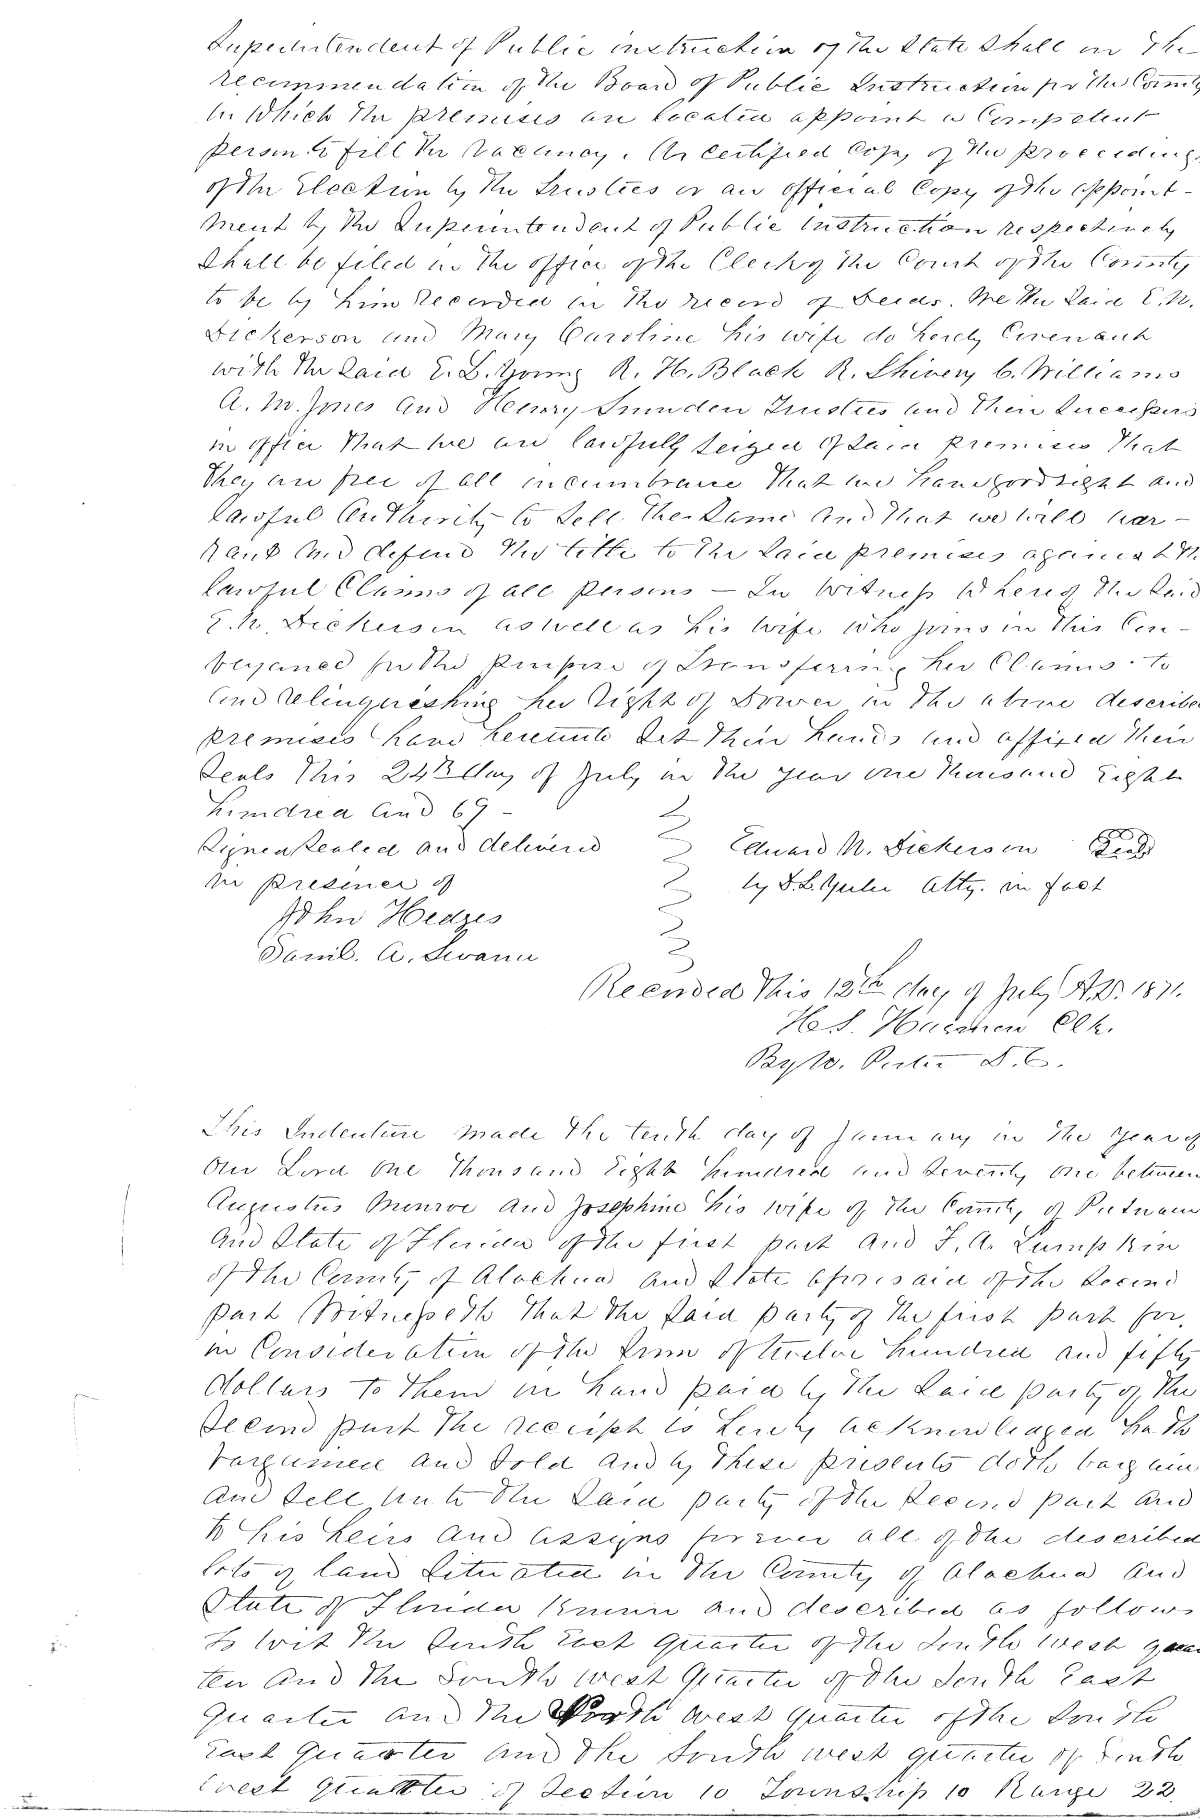 Superintendent of Public instruction of the State Shall on the
recommendation of the Board of Public Instruction for the County
in Which the premises are located appoint a Competent
person to fill the vacancy. A Certified Copy of the proceedings
of the Election by the Trustees or an official Copy of the appoint-
ment by the Superintendent of Public instruction respectively
Shall be filed in the office of the Clerk of the Court of the County
to be by him recorded in the record of Deeds. We the Said E. N.
Dickerson and Mary Caroline his wife do hereby Covenant
with the Said E. B. Young R. H. Black R. Shivery C. Williams
A. M. Jones and Henry Trustees and their Successors
in office that we are lawfully Seized of Said premises that
they are free of all incumbrance that we have good right and
lawful Authority to Sell the Same And that we will war-
rant and defend the title to the Said premises against the
lawful Claims of all persons — In Witness Whereof the Said
E. N. Dickerson as well as his wife who joins in this Con-
veyance for the purpose of transferring her Claims to
and relinquishing her right of Dower in the above described
premises have hereunto Set their hands and affixed their
Seals this 24th day of July in the year one thousand Eight
hundred and 69 -
Signed Sealed and delivered
in presence of
John Hedges
Saml. A. Swann
Edward N. Dickerson Seal
by D. L. Yulee Atty. in fact
Recorded this 12th day of July A.D. 1871.
H. S. Harmon Clk.
By W. Porter D. C.
This Indenture made the tenth day of January in the year of
Our Lord one thousand Eight hundred and Seventy one between
Augustus Monroe and Josephine his wife of the County of Putnam
and State of Florida of the first part and F. A. Lumpkin
of the County of Alachua and State aforesaid of the Second
part Witnesseth that the Said party of the first part for,
in Consideration of the Sum of twelve hundred and fifty
dollars to them in hand paid by the Said party of the
Second part the receipt is hereby acknowledged hath
bargained and Sold and by these presents doth bargain
and Sell unto the Said party of the Second part and
to his heirs and assigns forever all of the described
lots of land Situated in the County of Alachua and
State of Florida Known and described as follows
to wit the South East quarter of the South west quar
ter and the South west Quarter of the South East
quarter and the North west quarter of the South
East quarter and the South west quarter of South
west quarter of Section 10 Township 10 Range 22